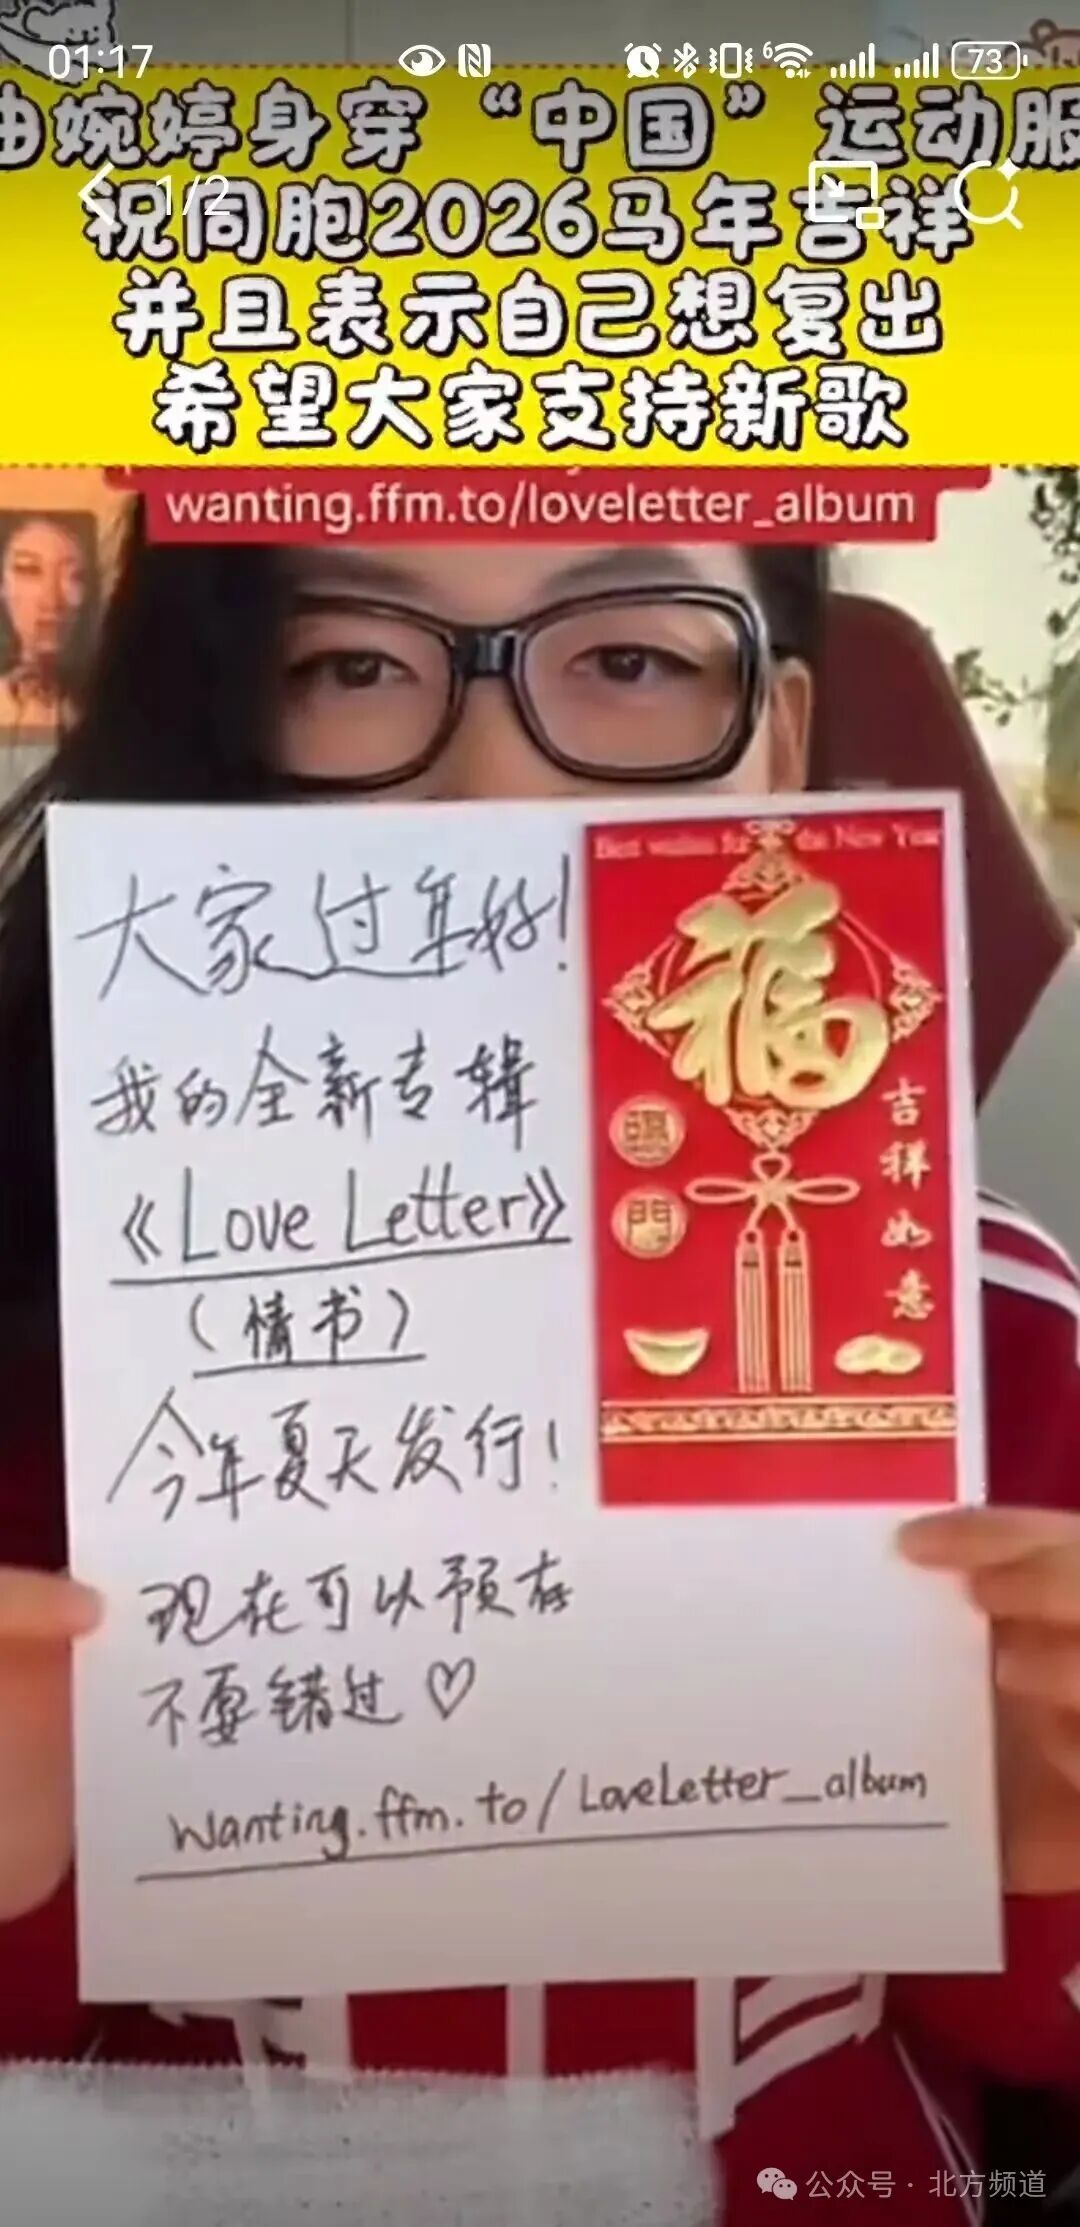 01:17
6
73
曲婉婷身穿“中国”运动服
1/2
祝同胞2026马年吉祥
并且表示自己想复出
希望大家支持新歌
wanting.ffm.to/loveletter_album
大家过年好!
我的全新专辑
《Love Letter》
(情书)
今年夏天发行!
现在可以预存
不要错过♡
Wanting.ffm.to/LoveLetter_album
Best wishes for the New Year
福
臨門
吉祥如意
公众号·北方频道